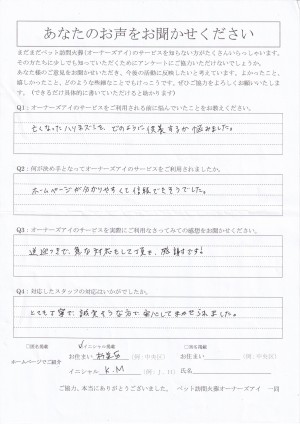 あなたのお声をお聞かせください
まだまだペット訪問火葬(オーナーズアイ)のサービスを知らない方がたくさんいらっしゃいます。
その方たちに少しでも知っていただくためにアンケートにご協力いただけないでしょうか。
あなた様のご意見をお聞かせいただき、今後の活動に反映したいと考えています。よかったこと、
嬉しかったこと、どのような些細なことでもけっこうです。ぜひご協力をよろしくお願いいたします。
(できるだけ具体的に書いていただけると助かります)
Q1:オーナーズアイのサービスをご利用される前に悩んでいたことをお教えください。
亡くなったハリネズミを、どのように供養するか悩みました。
Q2:何が決め手となってオーナーズアイのサービスをご利用されましたか。
ホームページが分かりやすくて信頼できそうでした。
Q3:オーナーズアイのサービスを実際にご利用なさってみての感想をお聞かせください。
送迎つきで、急な対応もして頂き、感謝です。
Q4:対応したスタッフの対応はいかがでしたか。
とても丁寧で、誠実そうな方で安心してまかせられました。
□匿名掲載 ✓イニシャル掲載 □実名掲載
ホームページでご紹介
お住まい (例:中央区) お住まい (例:中央区)
イニシャル K.M (例:J.H) 氏名
ご協力、本当にありがとうございました。 ペット訪問火葬オーナーズアイ 一同